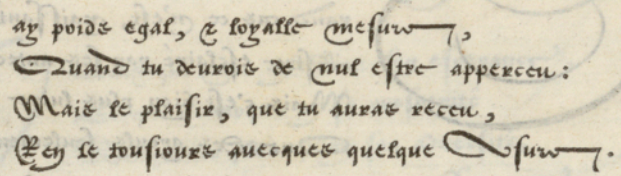 ay poids egal, & loyalle mesure,
Quand tu deurois de nul estre apperceu:
Mais le plaisir, que tu auras receu,
Ren le tousiours auecques quelque Vsure.